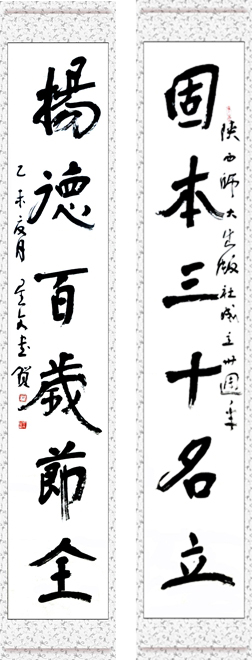 固本三十名立
陝西師大出版社成立卅週年
揚德百歲節全
乙未夏月
賀